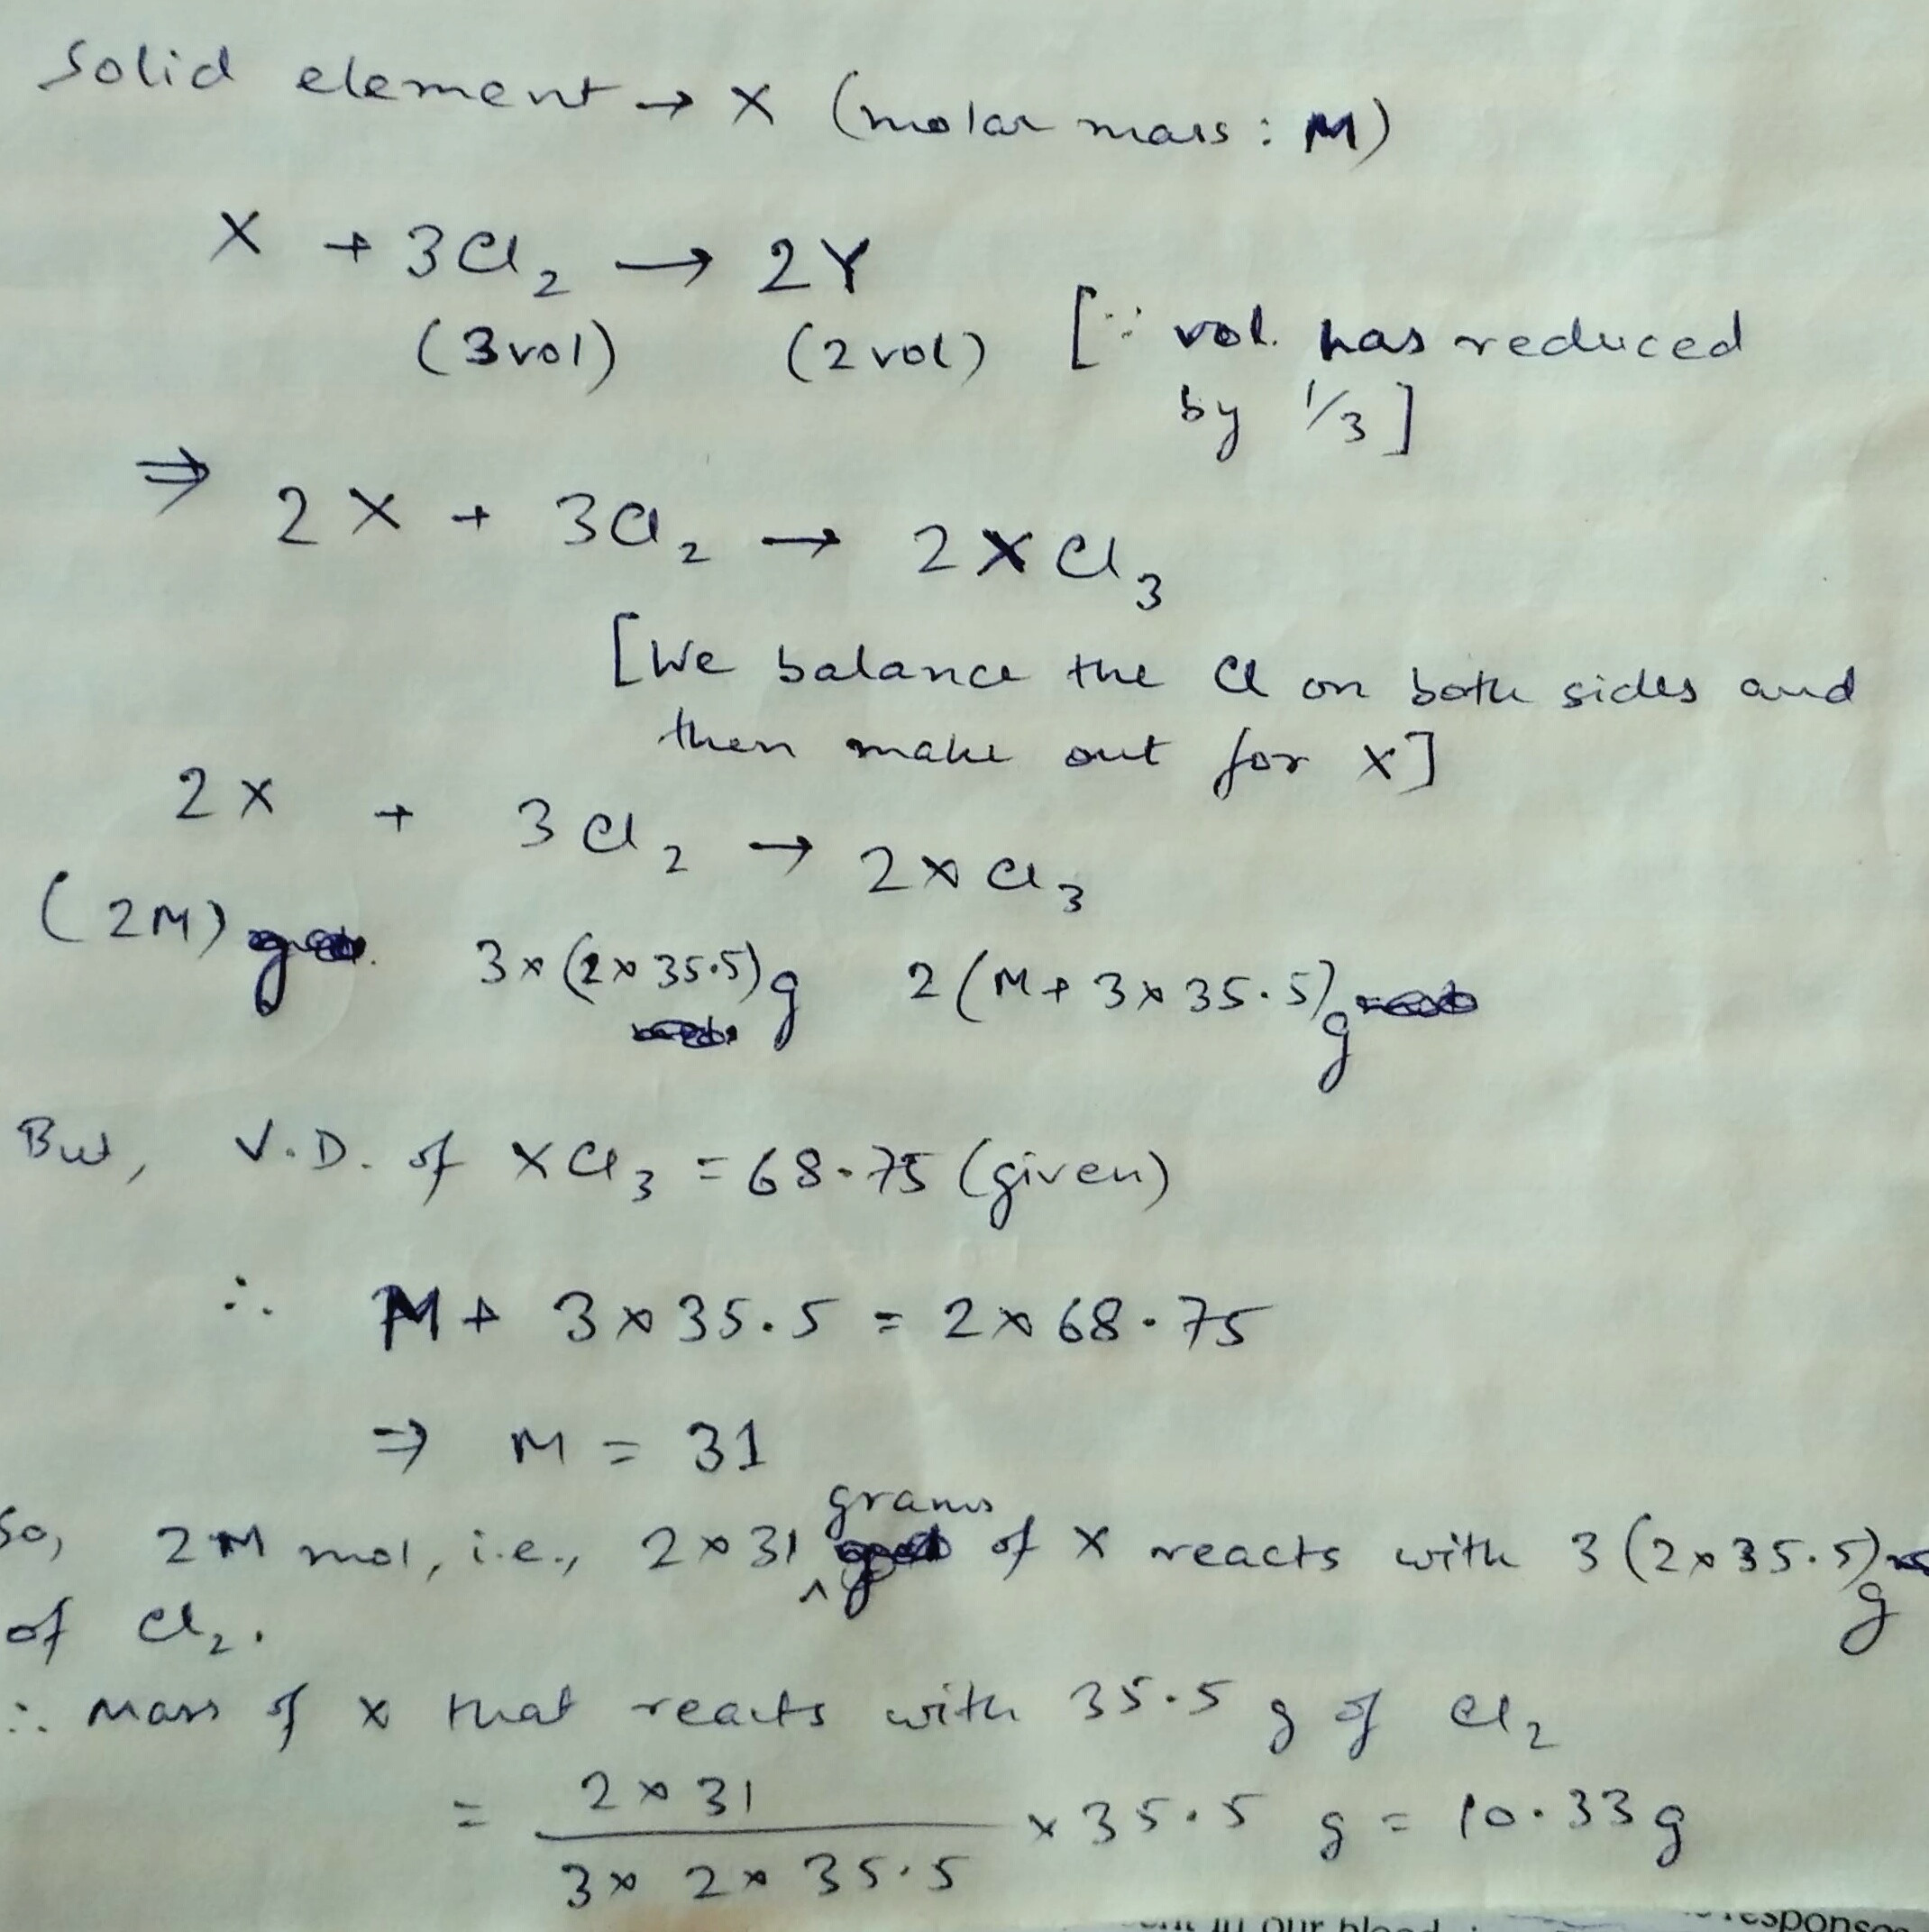 Solid element → X (molar mass: M)
X + 3Cl₂ → 2Y
(3vol) (2vol) [∵ vol. has reduced
by 1/3]
⇒ 2X + 3Cl₂ → 2XCl₃
[We balance the Cl on both sides and
then make out for X]
2X + 3Cl₂ → 2XCl₃
(2M) g 3×(2×35.5)g 2(M+3×35.5)g
But, V.D. of XCl₃ = 68.75 (given)
∴ M + 3×35.5 = 2×68.75
⇒ M = 31
So, 2M mol, i.e., 2×31 grams of X reacts with 3(2×35.5)g
of Cl₂.
∴ Mass of X that reacts with 35.5 g of Cl₂
= 2×31 / 3×2×35.5 × 35.5 g = 10.33g
in our blood
responses